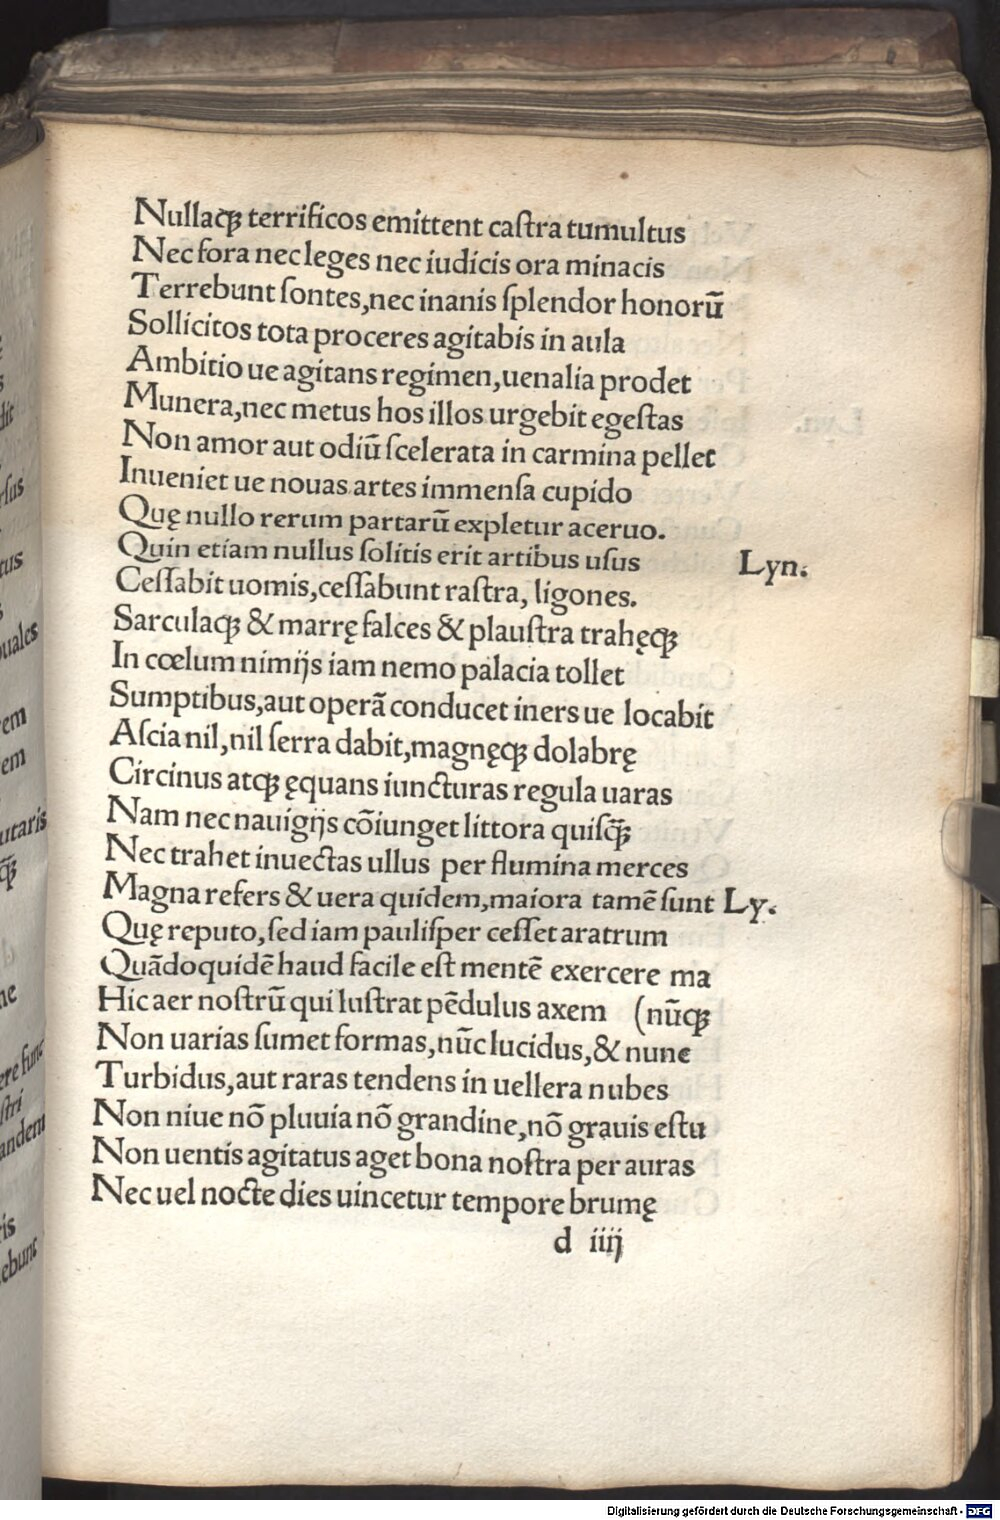 Nullaqꝫ terrificos emittent caſtra tumultus
Nec fora nec leges nec iudicis ora minacis
Terrebunt ſontes,nec inanis ſplendor honorū
Sollicitos tota proceres agitabis in aula
Ambitio ue agitans regimen,uenalia prodet
Munera,nec metus hos illos urgebit egeſtas
Non amor aut odiū ſcelerata in carmina pellet
Inueniet ue nouas artes immenſa cupido
Quę nullo rerum partarū expletur aceruo.
Quin etiam nullus ſolitis erit artibus uſus Lyn.
Ceſſabit uomis,ceſſabunt raſtra, ligones.
Sarculaqꝫ & marrę falces & plauſtra trahęqꝫ
In cœlum nimijs iam nemo palacia tollet
Sumptibus,aut operā conducet iners ue locabit
Aſcia nil,nil ſerra dabit,magnęqꝫ dolabrę
Circinus atqꝫ ęquans iuncturas regula uaras
Nam nec nauigijs cōiunget littora quiſq̄ꝫ
Nec trahet inuectas ullus per flumina merces
Magna refers & uera quidem,maiora tamē ſunt Ly.
Quę reputo,ſed iam pauliſper ceſſet aratrum
Quādoquidē haud facile eſt mentē exercere ma
Hic aer noſtrū qui luſtrat pēdulus axem (nūqꝫ
Non uarias ſumet formas,nūc lucidus,& nunc
Turbidus,aut raras tendens in uellera nubes
Non niue nō pluuia nō grandine,nō grauis eſtu
Non uentis agitatus aget bona noſtra per auras
Nec uel nocte dies uincetur tempore brumę
d iiij
Digitalisierung gefördert durch die Deutsche Forschungsgemeinschaft - DFG